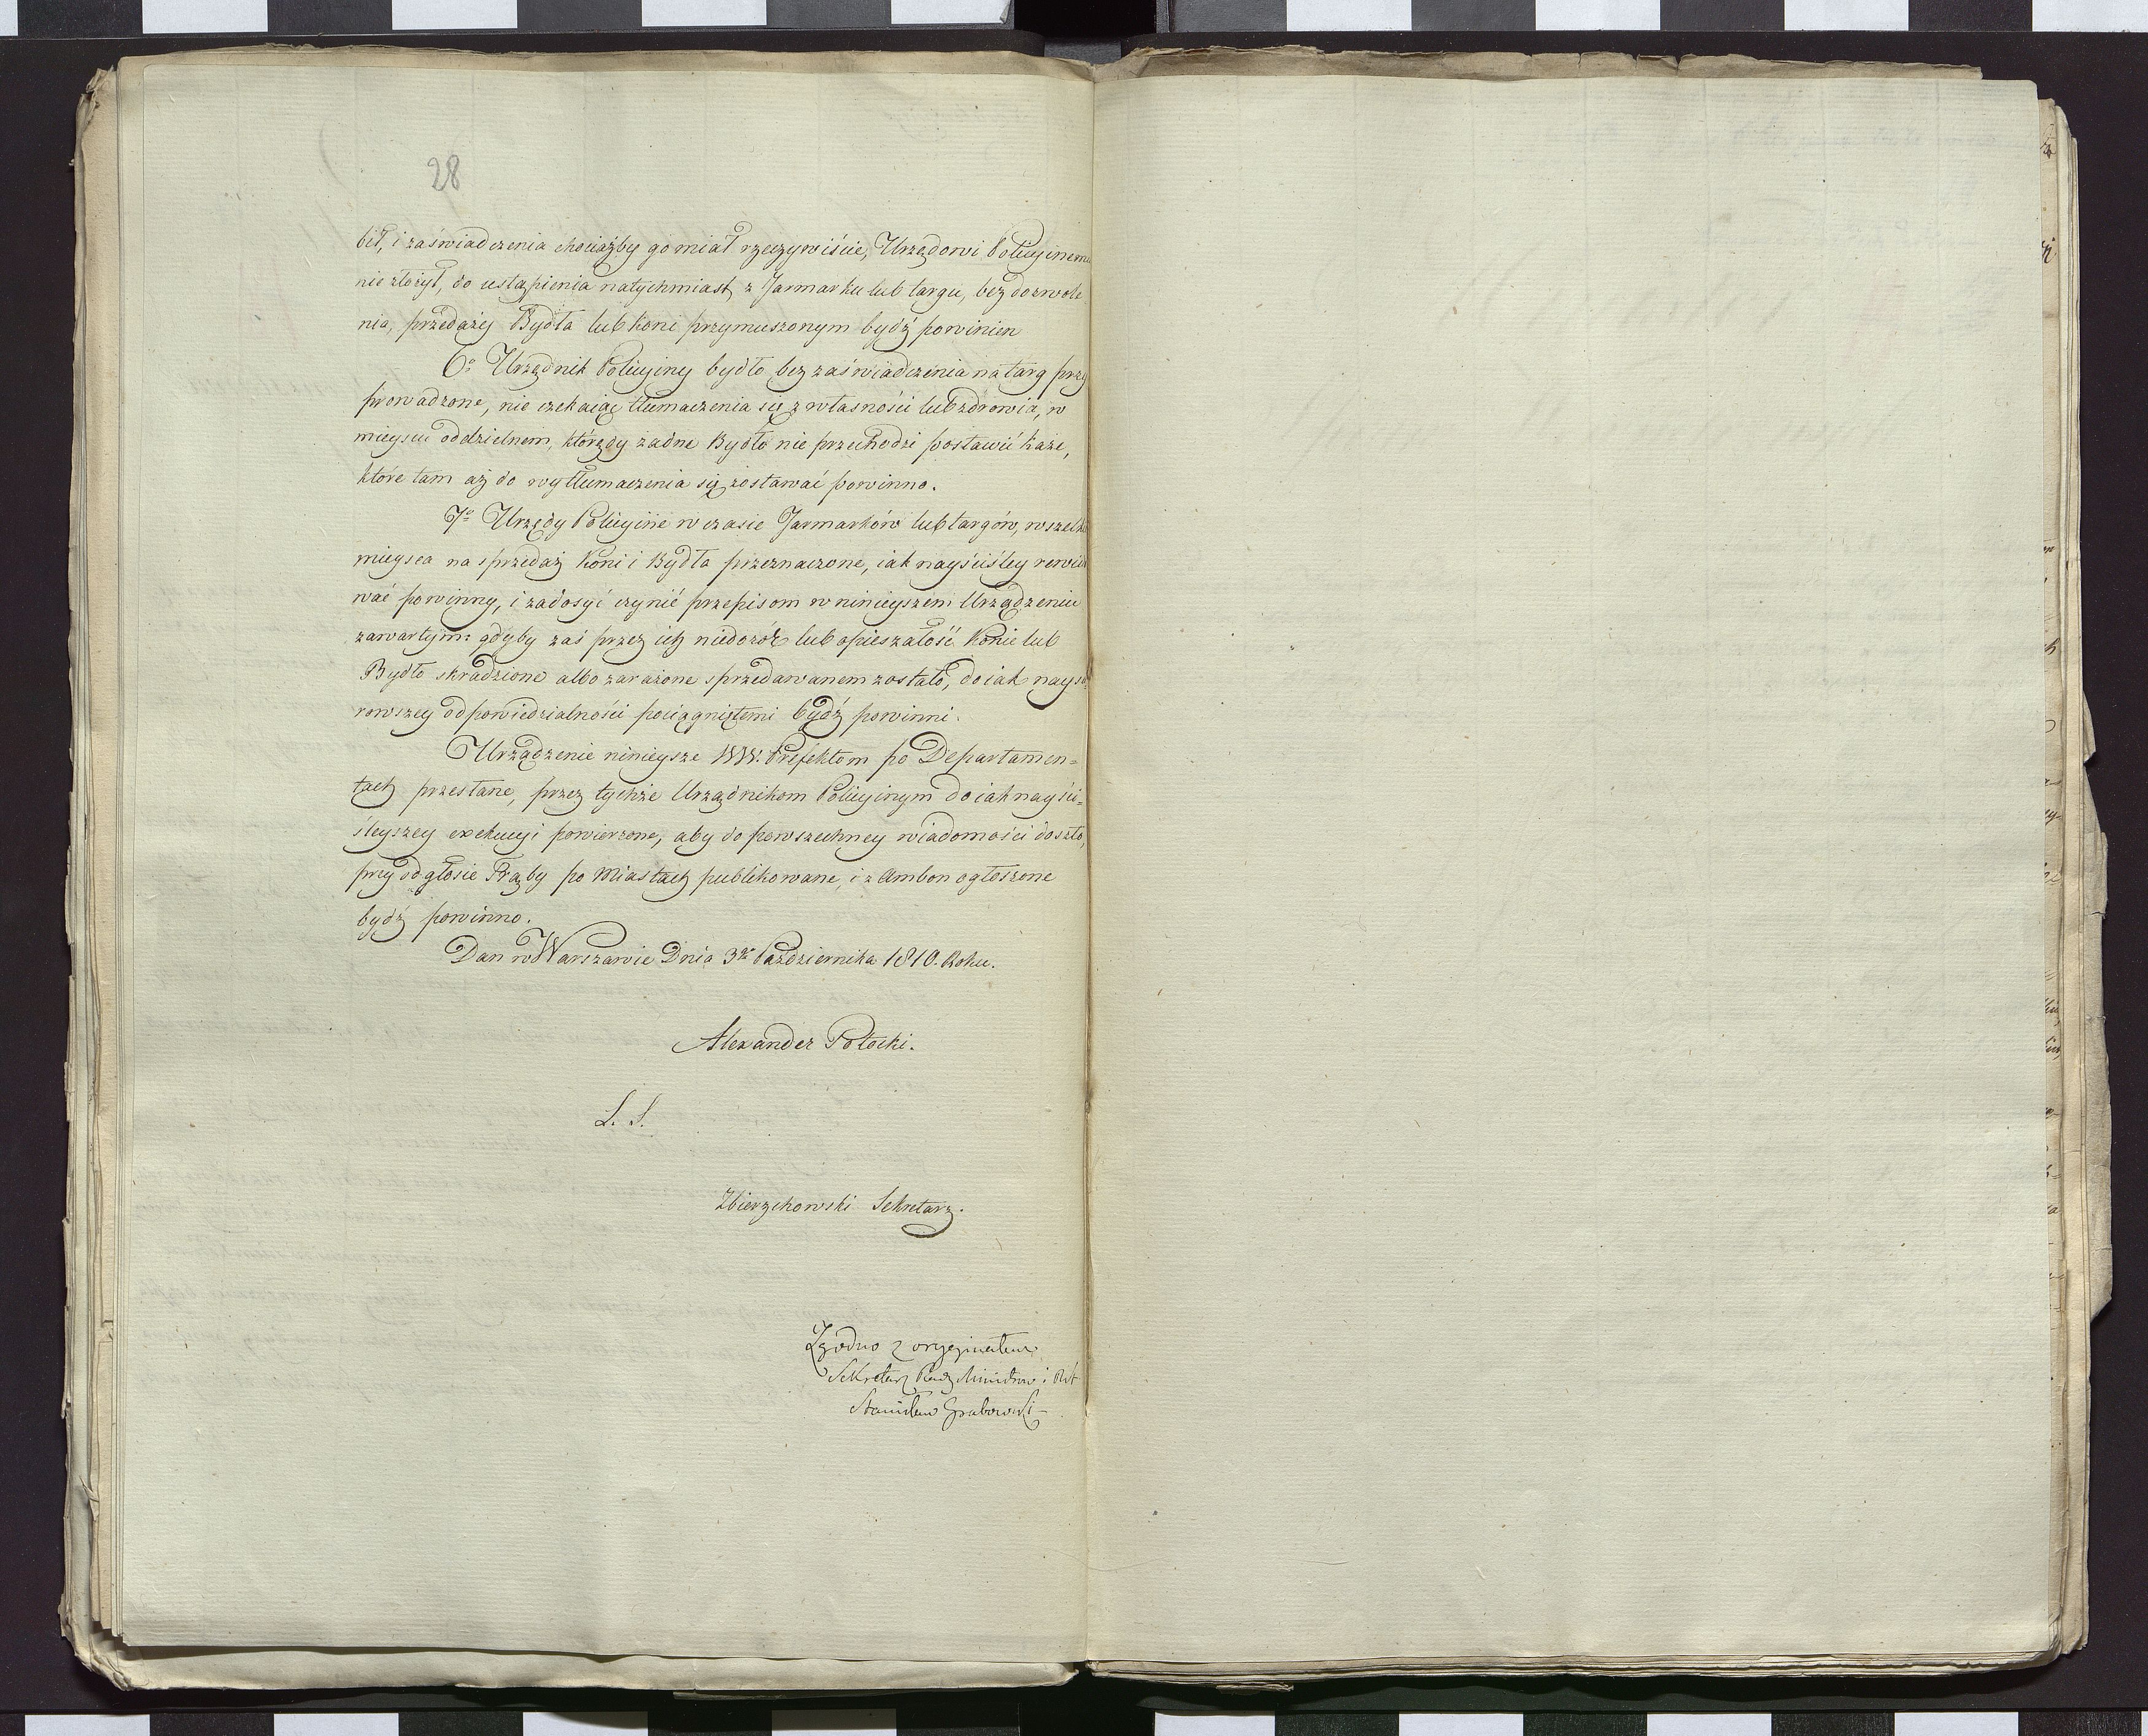 28
bił, i zaświadczenia chociażby go miał rzeczywiście, Urzędowi Policyjnemu
nie złożył, do ustąpienia natychmiast z Jarmarku lub targu, bez dozwole
nia, przedaży Bydła lub koni przymuszonym bydź powinien
6o Urzędnik Policyiny bydło bez zaświadczenia na targ przy
prowadzone, nie czekaiąc tłumaczenia się z własności lub zdrowia, w
mieyscu oddzielnem, którędy żadne Bydło nie przechodzi postawić każe,
które tam aż do wytłumaczenia się zostawać powinno.
7o Urzędy Policyine w czasie Jarmarków lub targów, wszelkie
mieysca na sprzedaż Koni i Bydła przeznaczone, iak nayściśley rewido
wać powinny, i zadosyć czynić przepisom w ninieyszem Urządzeniu
zawartym: gdyby zaś przez ich niedozór lub opieszałość Konie lub
Bydło skradzione albo zarażone sprzedawanem zostało, do iak naysu
rowszey odpowiedzialności pociągniętemi bydź powinni.
Urządzenie ninieysze WW. Prefektom po Departamen=
tach przesłane, przez tychże Urzędnikom Policyinym do iak nayści=
śleyszey exekucyi powierzone, aby do powszechney wiadomości doszło,
przy odgłosie Trąby po Miastach publikowane, i z Ambon ogłoszone
bydź powinno.
Dan w Warszawie Dnia 3go Października 1810. Roku.
Alexander Potocki.
L. S.
Zbierzchowski Sekretarz.
Zgodno z oryginałem
Sekretarz Rady Ministrów i
Stanisław Grabowski